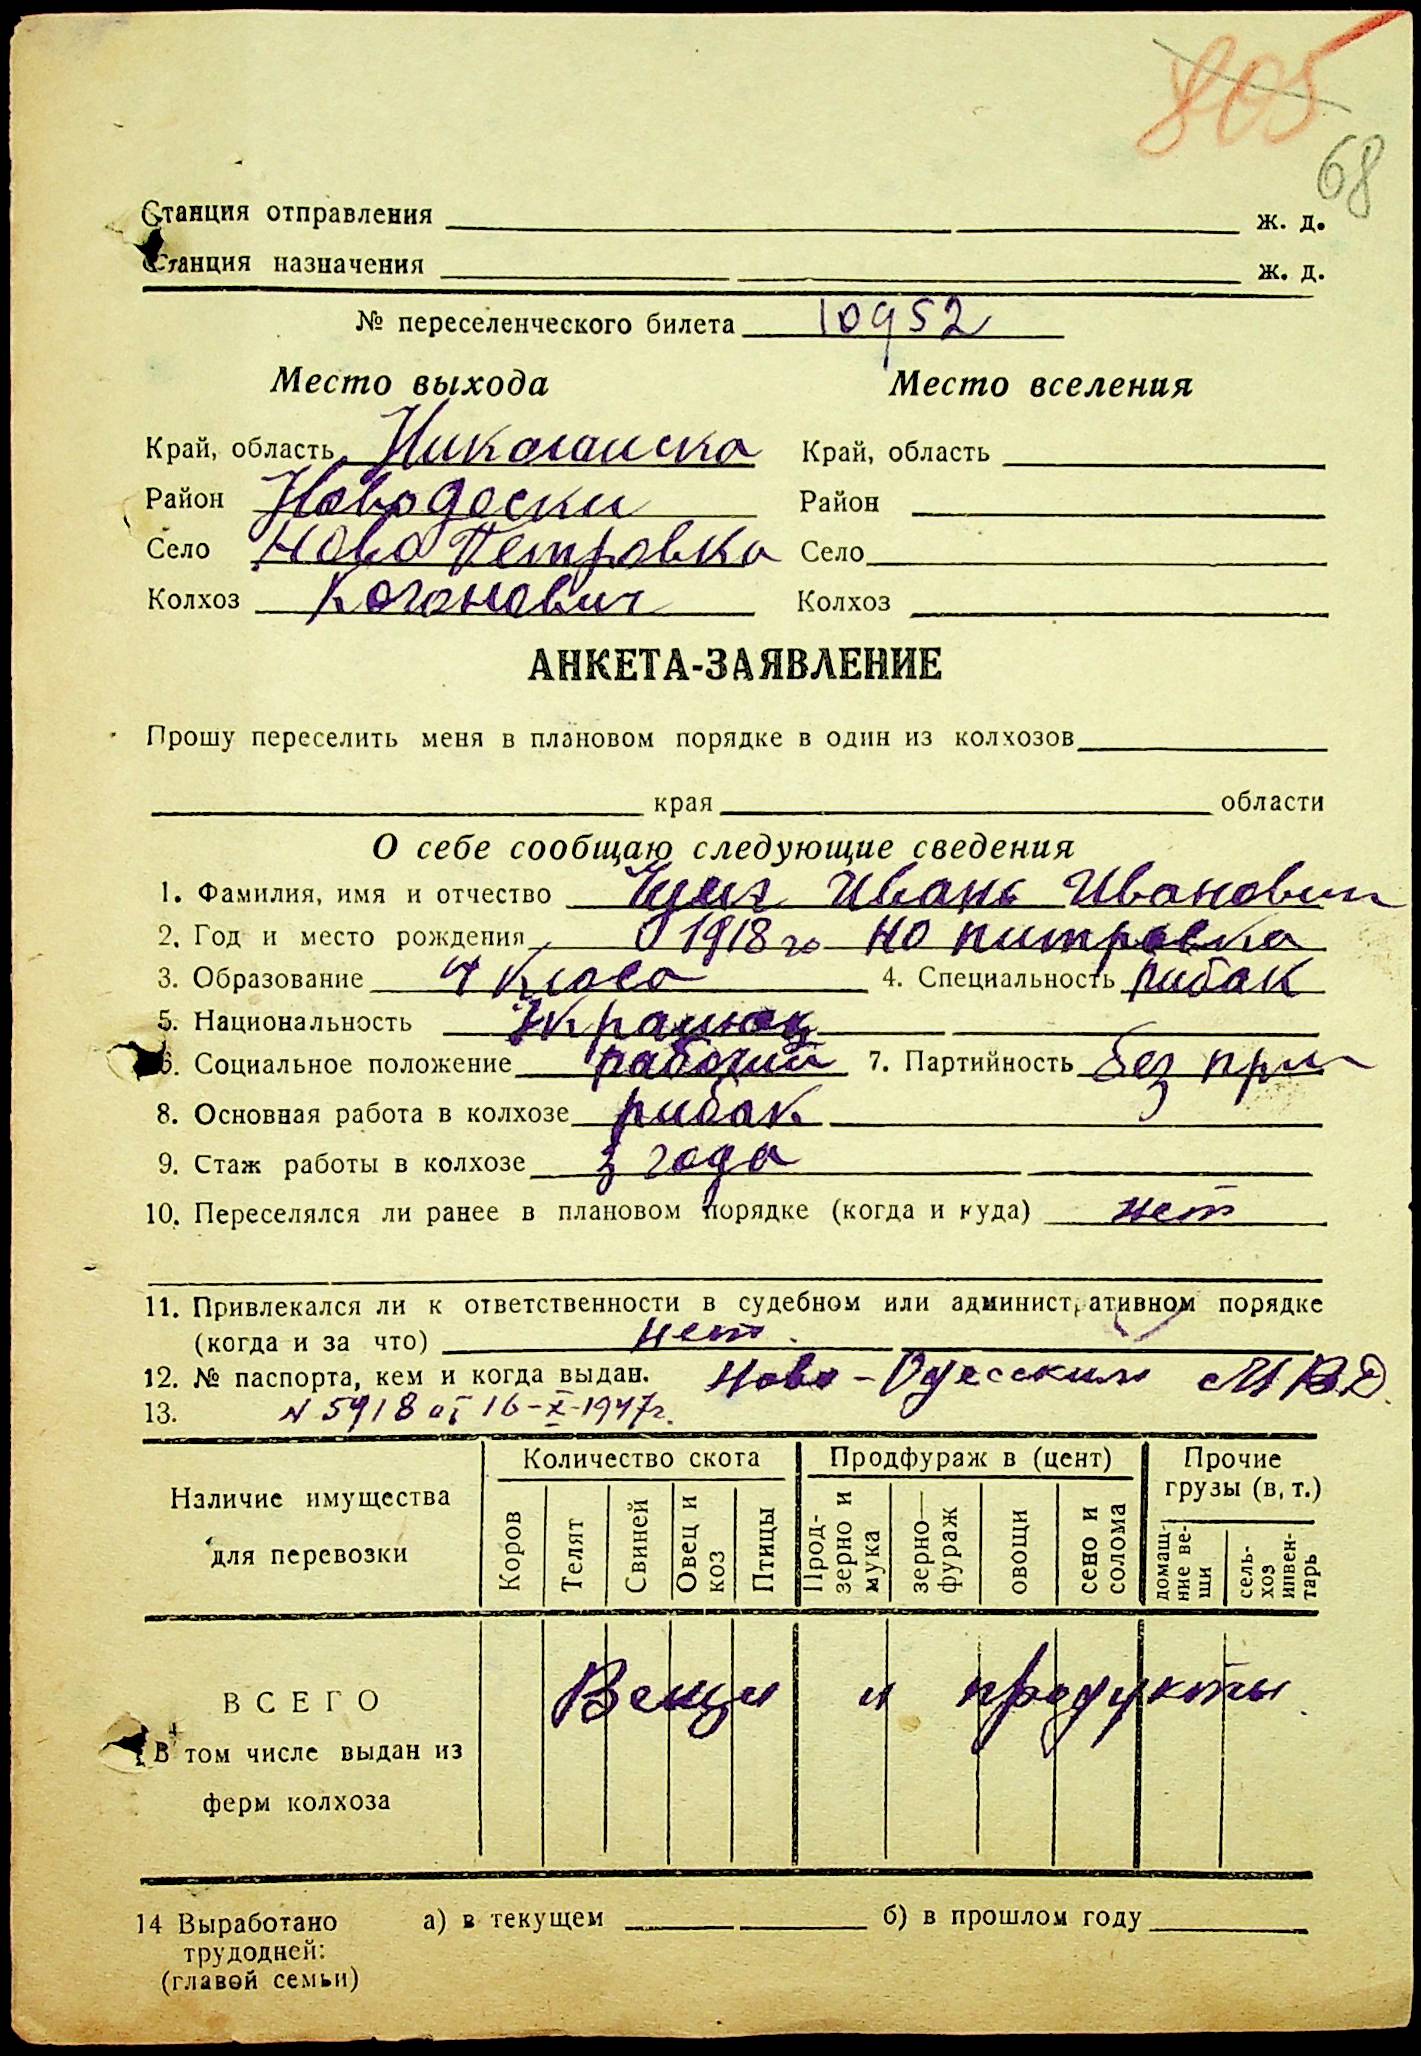 805
68
Станция отправления ж. д.
Станция назначения ж. д.
№ переселенческого билета 10952
Место выхода Место вселения
Край, область Николаиска Край, область
Район Новодески Район
Село Ново Петровка Село
Колхоз Коганович Колхоз
АНКЕТА-ЗАЯВЛЕНИЕ
Прошу переселить меня в плановом порядке в один из колхозов
края области
О себе сообщаю следующие сведения
1. Фамилия, имя и отчество Иван Иванович
2. Год и место рождения 1918 го Но питровка
3. Образование 4 класа 4. Специальность рибак
5. Национальность
6. Социальное положение рабочий 7. Партийность без
8. Основная работа в колхозе рибак
9. Стаж работы в колхозе 3 года
10. Переселялся ли ранее в плановом порядке (когда и куда) нет
11. Привлекался ли к ответственности в судебном или административном порядке
(когда и за что) нет.
12. № паспорта, кем и когда выдан. Ново-Одесским МВД.
13. N 5918 от 16-X-1947г.
Наличие имущества
для перевозки
Количество скота Продфураж в (цент) Прочие
грузы (в, т.)
Коров Телят Свиней Овец и коз Птицы Прод-зерно и мука зерно—фураж овощи сено и солома домащ-ние ве-щи сель-хоз инвен-тарь
ВСЕГО Вещи и продукты
В том числе выдан из
ферм колхоза
14 Выработано а) в текущем б) в прошлом году
трудодней:
(главой семьи)